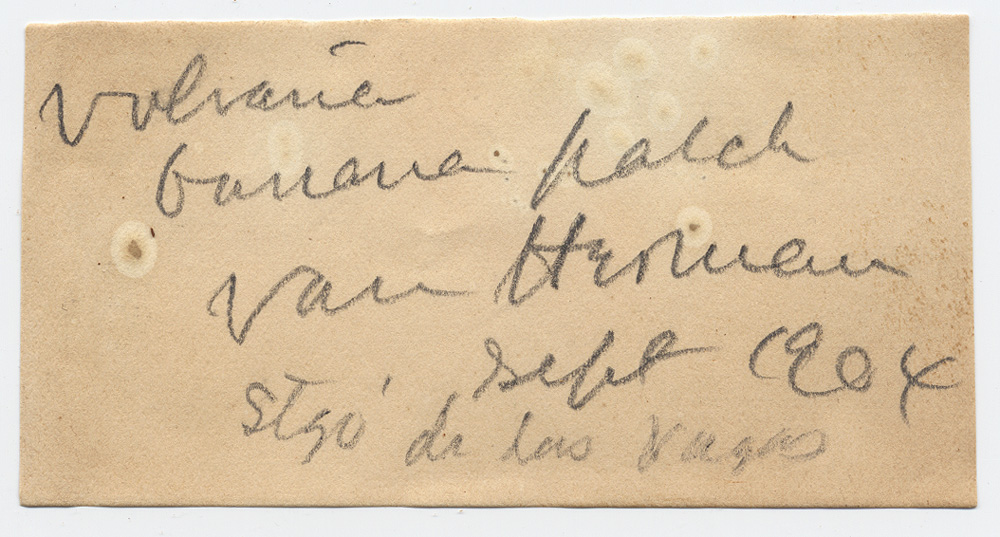 Volvaria
banana patch
Van Herman
Sept 1904
Stgo de las Vegas